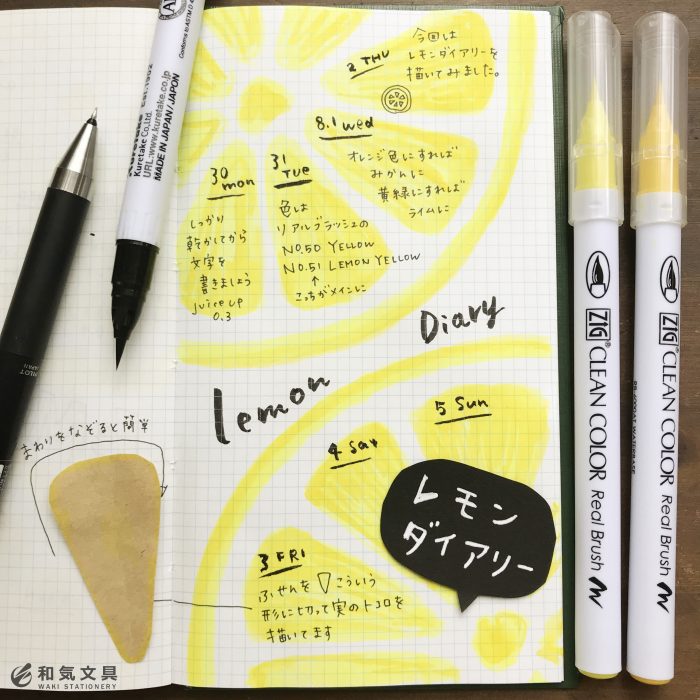 2 THU
今回は
レモンダイアリーを
描いてみました。
8.1 wed
オレンジ色にすれば
みかんに
黄緑にすれば
ライムに
30
mon
しっかり
乾かしてから
文字を
書きましょう
Juice up
0.3
31
TUE
色は
リアルブラッシュの
NO.50 YELLOW
NO.51 LEMON YELLOW
↑
こっちがメインに
lemon
Diary
4 Sat
5 Sun
レモン
ダイアリー
3 FRI
ふせんを▽こういう
形に切って実のトコロを
描いてます
まわりをなぞると簡単
Kuretake Co., Ltd.
URL:www.kuretake.co.jp
MADE IN JAPAN/JAPON
PILOT
JAPAN
ZIG® CLEAN COLOR Real Brush
ZIG® CLEAN COLOR Real Brush
和気文具
WAKI STATIONERY